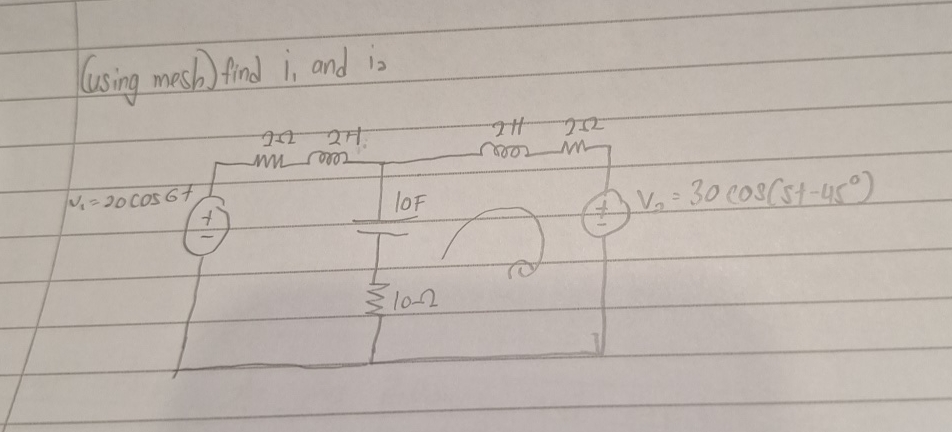 (using mesh) find i₁ and i₂
2Ω 2H 2H 2Ω
V₁ = 20 cos 6t
10F
V₂ = 30 cos(5t-45°)
+
-
+
-
10Ω